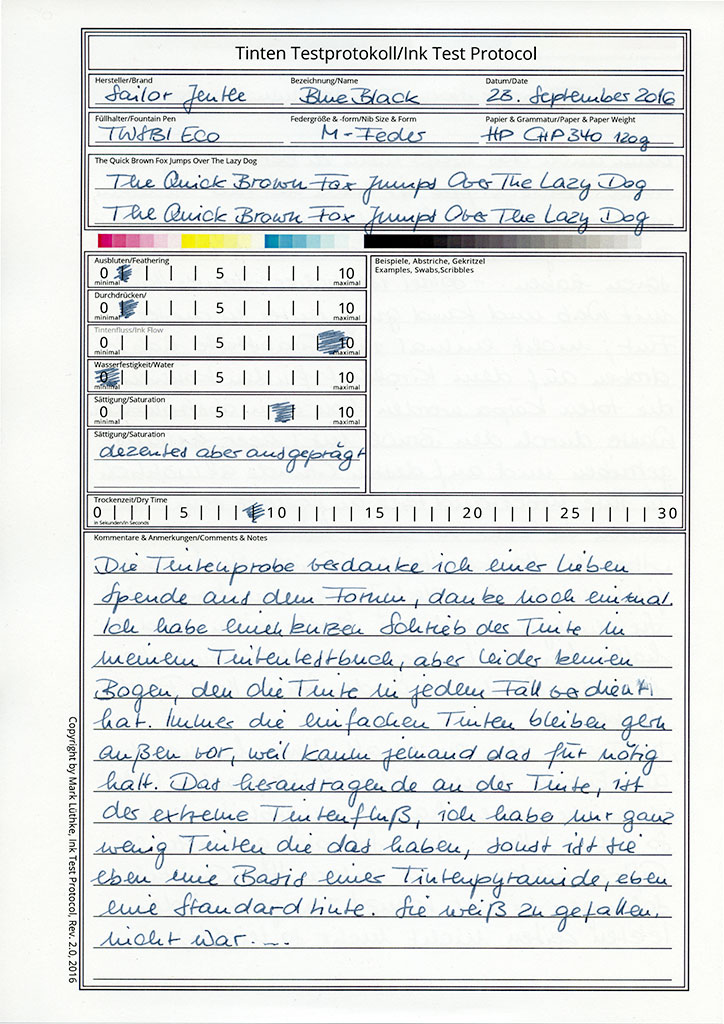 Tinten Testprotokoll/Ink Test Protocol
Hersteller/Brand Bezeichnung/Name Datum/Date
Sailor Jentle Blue Black 23. September 2016
Füllhalter/Fountain Pen Federgröße & -form/Nib Size & Form Papier & Grammatur/Paper & Paper Weight
TWSBI Eco M-Feder HP CHP340 120g
The Quick Brown Fox Jumps Over The Lazy Dog
The Quick Brown Fox Jumps Over The Lazy Dog
The Quick Brown Fox Jumps Over The Lazy Dog
Ausbluten/Feathering
0 | | | | | 5 | | | | 10
minimal maximal
Durchdrücken/
0 | | | | | 5 | | | | 10
minimal maximal
Tintenfluss/Ink Flow
0 | | | | 5 | | | | 10
minimal maximal
Wasserfestigkeit/Water
0 | | | | 5 | | | | 10
minimal maximal
Sättigung/Saturation
0 | | | | 5 | | | | 10
minimal maximal
Sättigung/Saturation
dezentes aber ausgeprägt
Beispiele, Abstriche, Gekritzel
Examples, Swabs,Scribbles
Trockenzeit/Dry Time
0 | | | | 5 | | | | 10 | | | | 15 | | | | 20 | | | | 25 | | | | 30
in Sekunden/in Seconds
Kommentare & Anmerkungen/Comments & Notes
Die Tintenprobe verdanke ich einer lieben
Spende aus dem Forum, danke noch einmal.
Ich habe einen kurzen Schrieb der Tinte in
meinem Tintentestbuch, aber leider keinen
Bogen, den die Tinte in jedem Fall verdient
hat. Immer die einfachen Tinten bleiben gern
außen vor, weil kaum jemand das für nötig
hält. Das herausragende an der Tinte, ist
der extreme Tintenfluß, ich habe nur ganz
wenig Tinten die das haben, sonst ist sie
eben eine Basis einer Tintenpyramide, eben
eine Standardtinte. Sie weiß zu gefallen,
nicht war....
Copyright by Mark Lüthke, Ink Test Protocol, Rev. 2.0, 2016